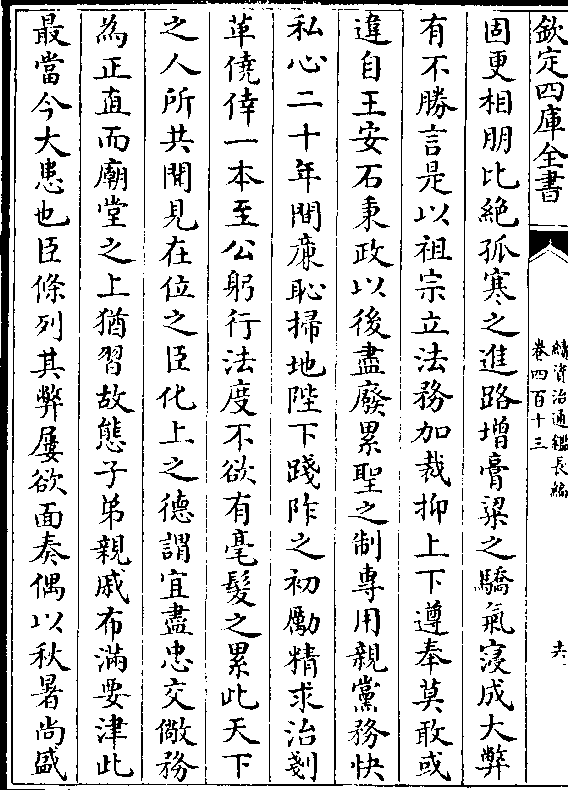 欽定四庫全書
續資治通鑑長編
卷四百十三
六
固更相朋比絶孤寒之進路增膏粱之驕氣寖成大弊
有不勝言是以祖宗立法務加裁抑上下遵奉莫敢或
違自王安石秉政以後盡廢累聖之制專用親黨務快
私心二十年間廉恥掃地陛下踐阼之初勵精求治剗
革僥倖一本至公躬行法度不欲有毫髮之累此天下
之人所共聞見在位之臣化上之德謂宜盡忠交儆務
為正直而廟堂之上猶習故態子弟親戚布滿要津此
最當今大患也臣條列其弊屢欲面奏偶以秋暑尚盛